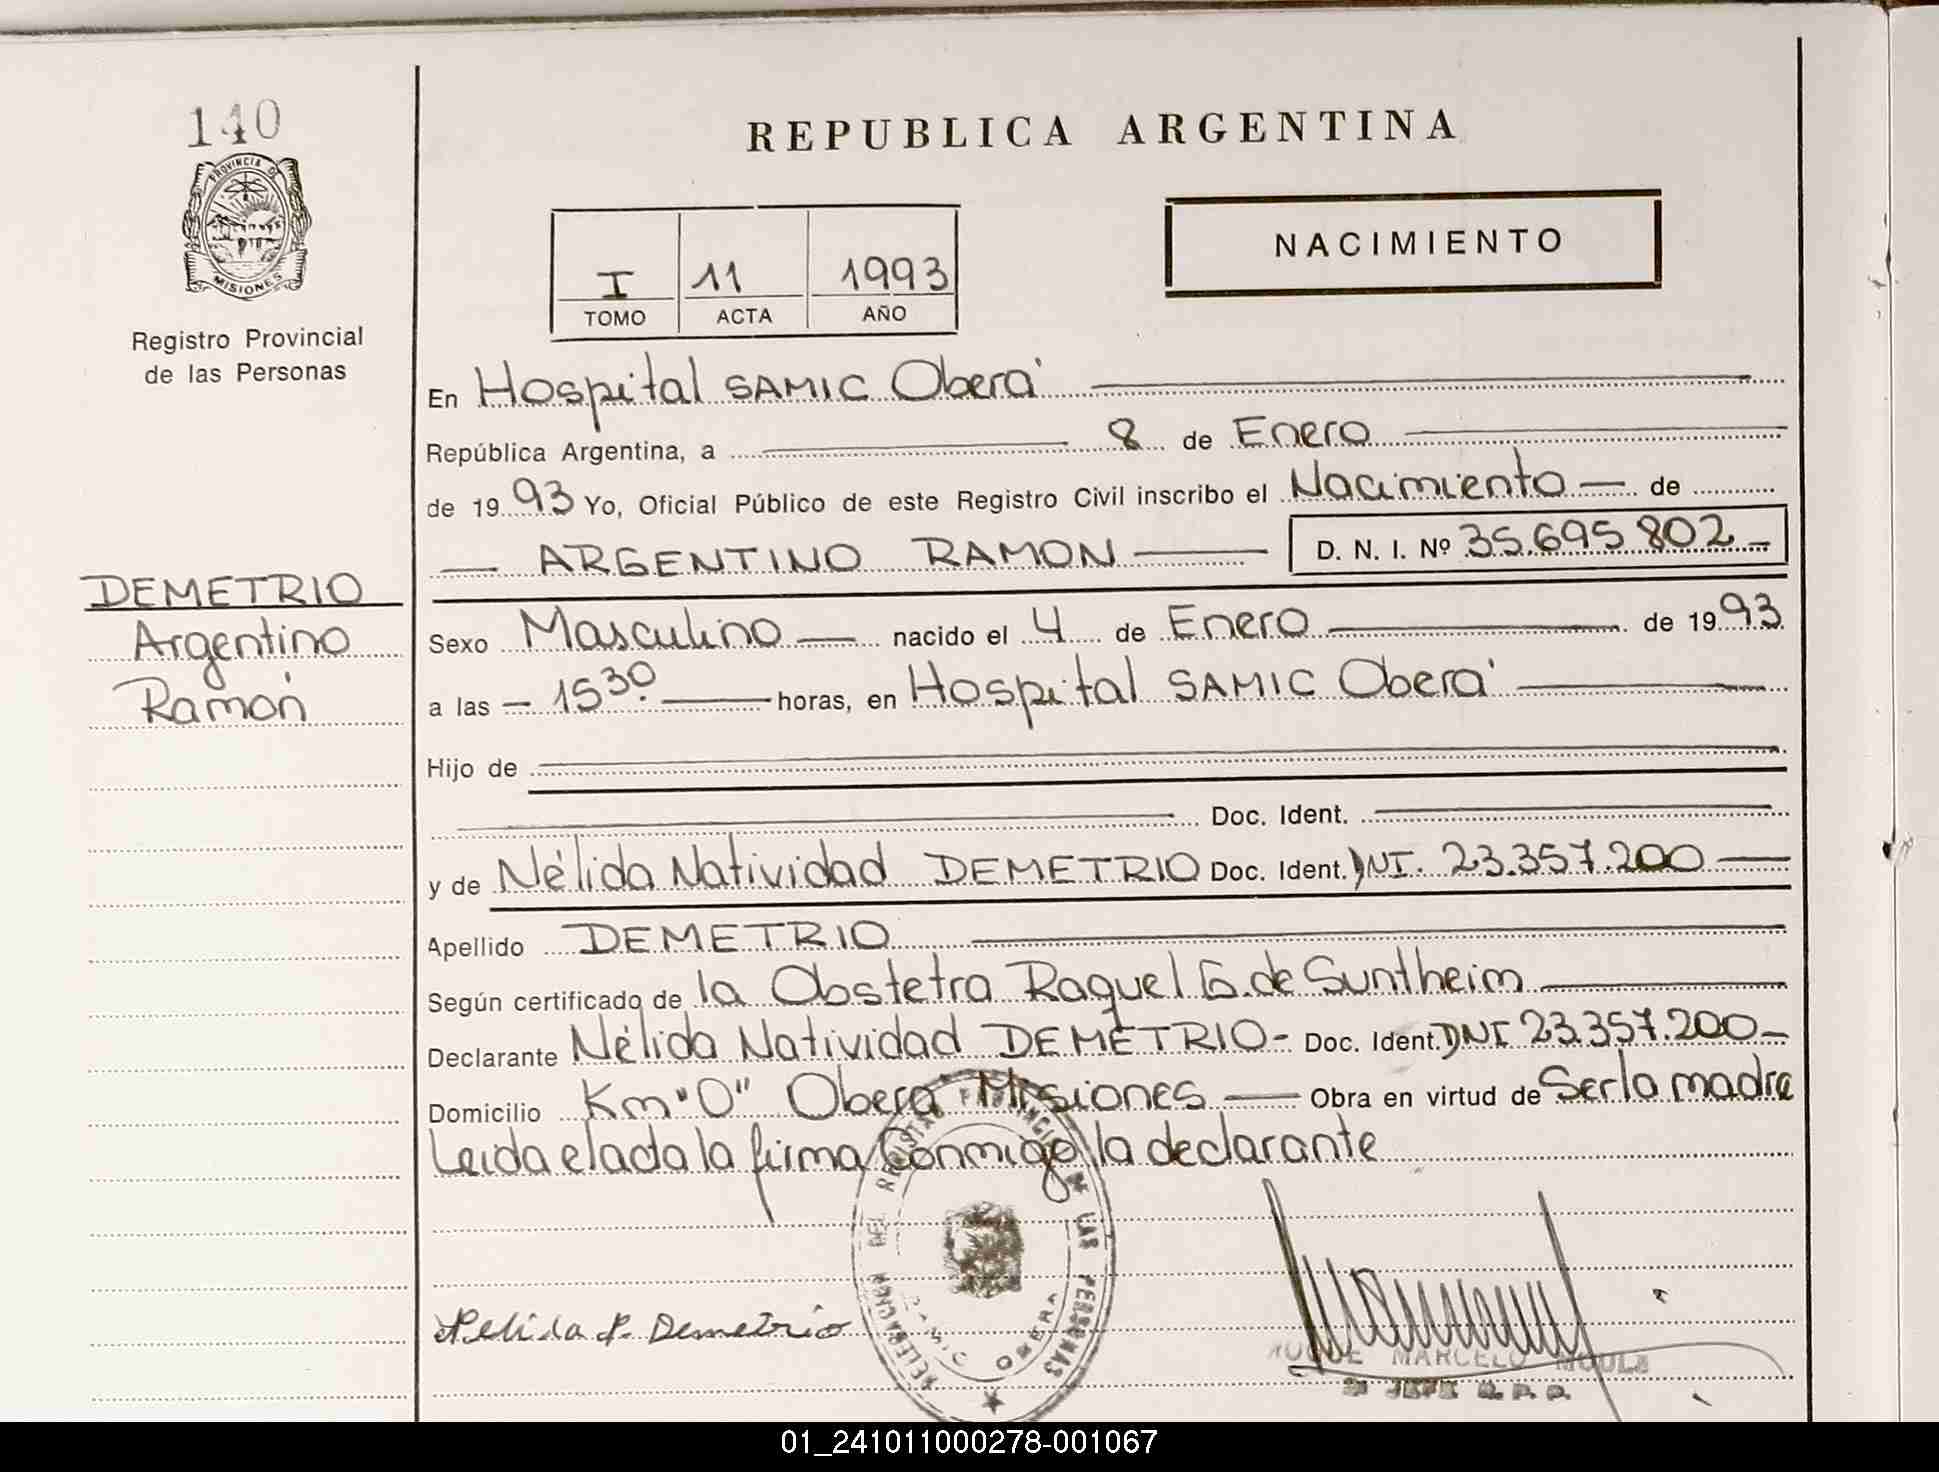 140
PROVINCIA DE
MISIONES
Registro Provincial
de las Personas
DEMETRIO
Argentino
Ramón
REPUBLICA ARGENTINA
I 11 1993
TOMO ACTA AÑO
NACIMIENTO
En Hospital SAMIC Oberá
República Argentina, a 8 de Enero
de 1993 Yo, Oficial Público de este Registro Civil inscribo el Nacimiento de
ARGENTINO RAMON D. N. I. Nº 35.695.802
Sexo Masculino nacido el 4 de Enero de 1993
a las 15 30 horas, en Hospital SAMIC Oberá
Hijo de
Doc. Ident.
y de Nélida Natividad DEMETRIO Doc. Ident. DNI. 23.357.200
Apellido DEMETRIO
Según certificado de la Obstetra Raquel G. de Suntheim
Declarante Nélida Natividad DEMETRIO Doc. Ident. DNI 23.357.200
Domicilio Km "0" Oberá Misiones Obra en virtud de Ser la madre
Leida el acta la firma Conmigo la declarante
DELEGACION DEL REGISTRO PROVINCIAL DE LAS PERSONAS
OBERA
Nelida N. Demetrio
MARCELO
JEFE R. P. P.
01_241011000278-001067